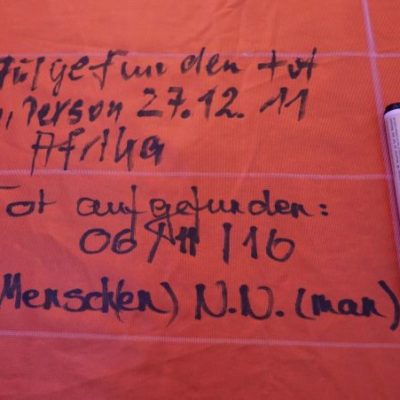 aufgefunden tot
1, Person 27.12.11
Afrika
Tot aufgefunden:
06/11/16
Mensch(en) N.N. (man)